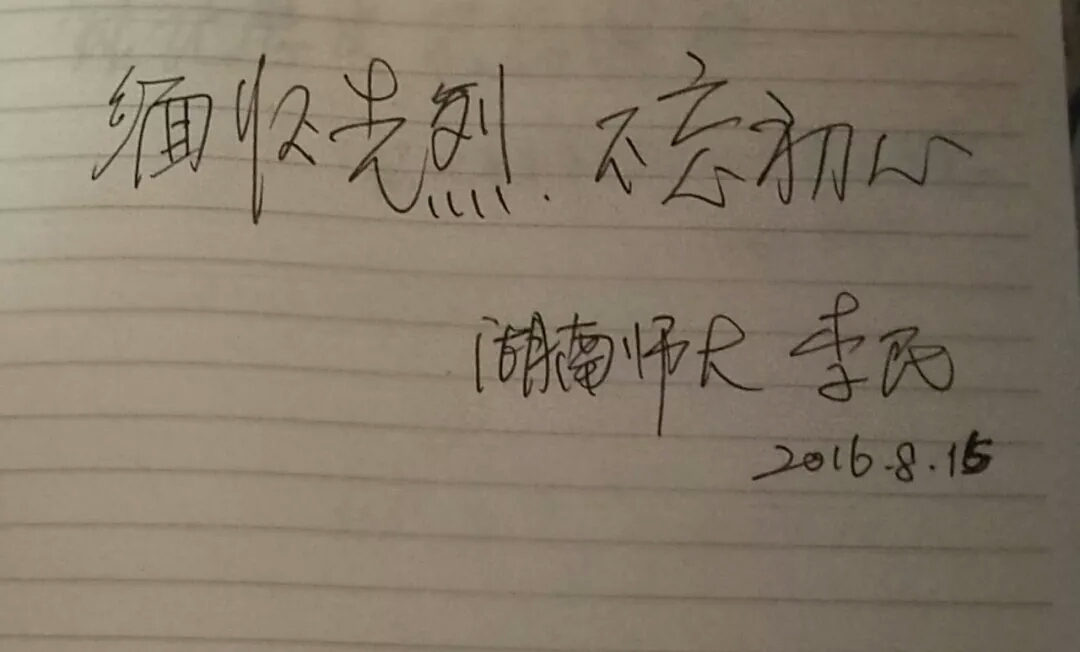 缅怀先烈.不忘初心
湖南师大 李民
2016.8.15